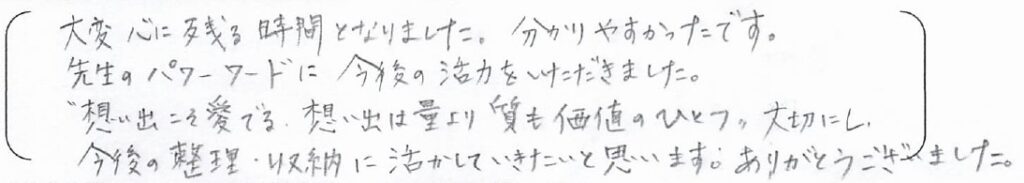 大変心に残る時間となりました。分かりやすかったです。
先生のパワーワードに今後の活力をいただきました。
"想い出こそ愛でる、想い出は量より質も価値のひとつ〟大切にし、
今後の整理・収納に活かしていきたいと思います。ありがとうございました。